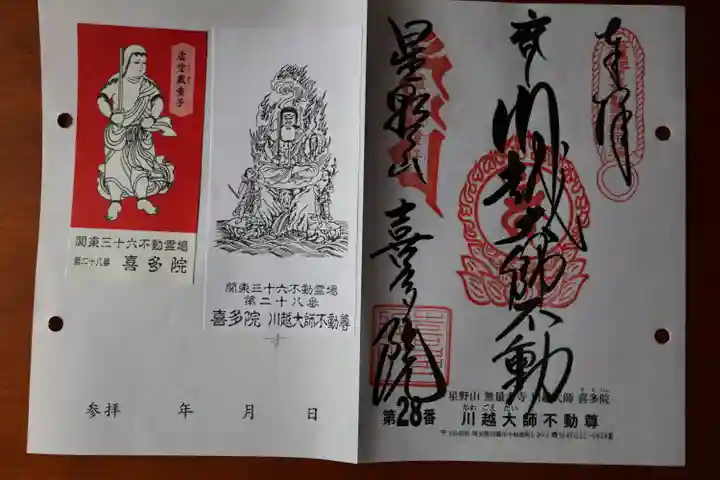 虚空蔵童子
関東三十六不動霊場
第二十八番 喜多院
関東三十六不動霊場
第二十八番
喜多院 川越大師不動尊
参拝 年 月 日
奉拝
川越大師不動
星野山 喜多院
星野山 無量寿寺 川越大師 喜多院
第28番 川越大師不動尊
かわ ごえ だい し